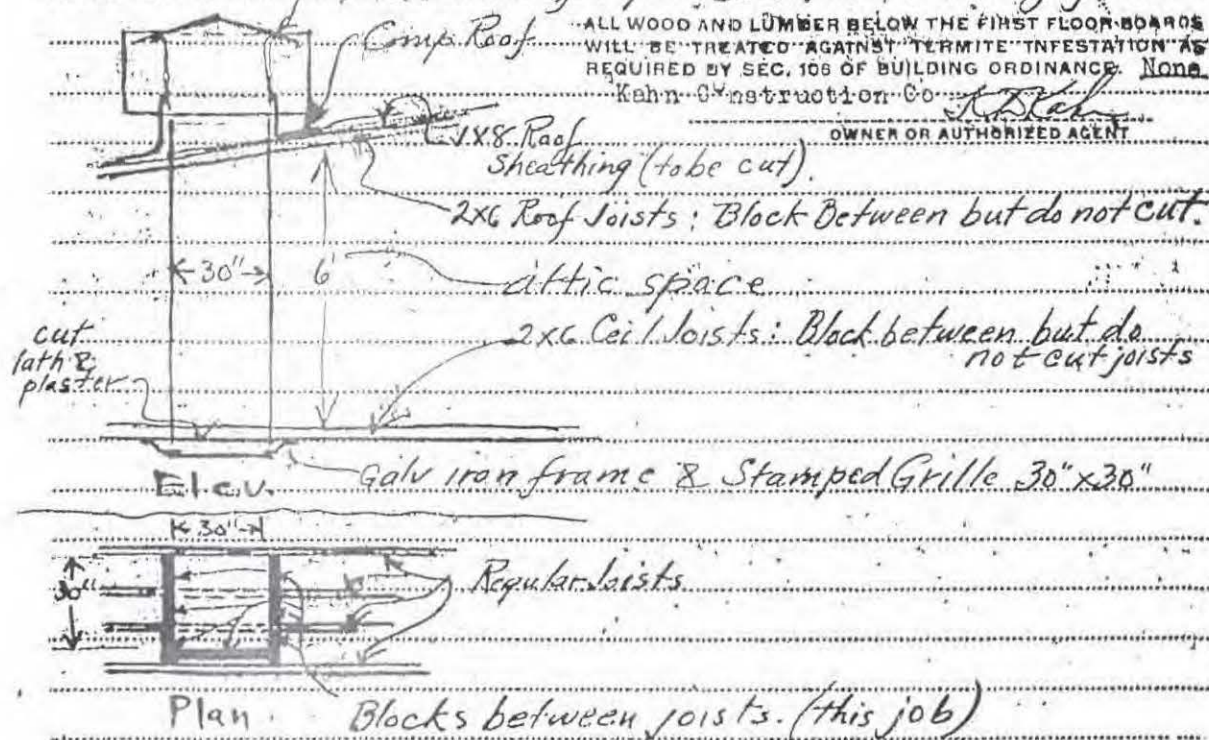 ALL WOOD AND LUMBER BELOW THE FIRST FLOOR BOARDS
WILL BE TREATED AGAINST TERMITE INFESTATION AS
REQUIRED BY SEC. 106 OF BUILDING ORDINANCE. None
Kahn Construction Co
OWNER OR AUTHORIZED AGENT
Comp. Roof
1x8 Roof
Sheathing (to be cut).
2x6 Roof Joists: Block Between but do not cut.
30"
6'
attic space
2x6 Ceil Joists: Block between but do
not cut joists
cut
lath &
plaster
Galv iron frame & Stamped Grille 30"x30"
Elev.
30"
30"
Regular Joists
Plan.
Blocks between joists. (this job)